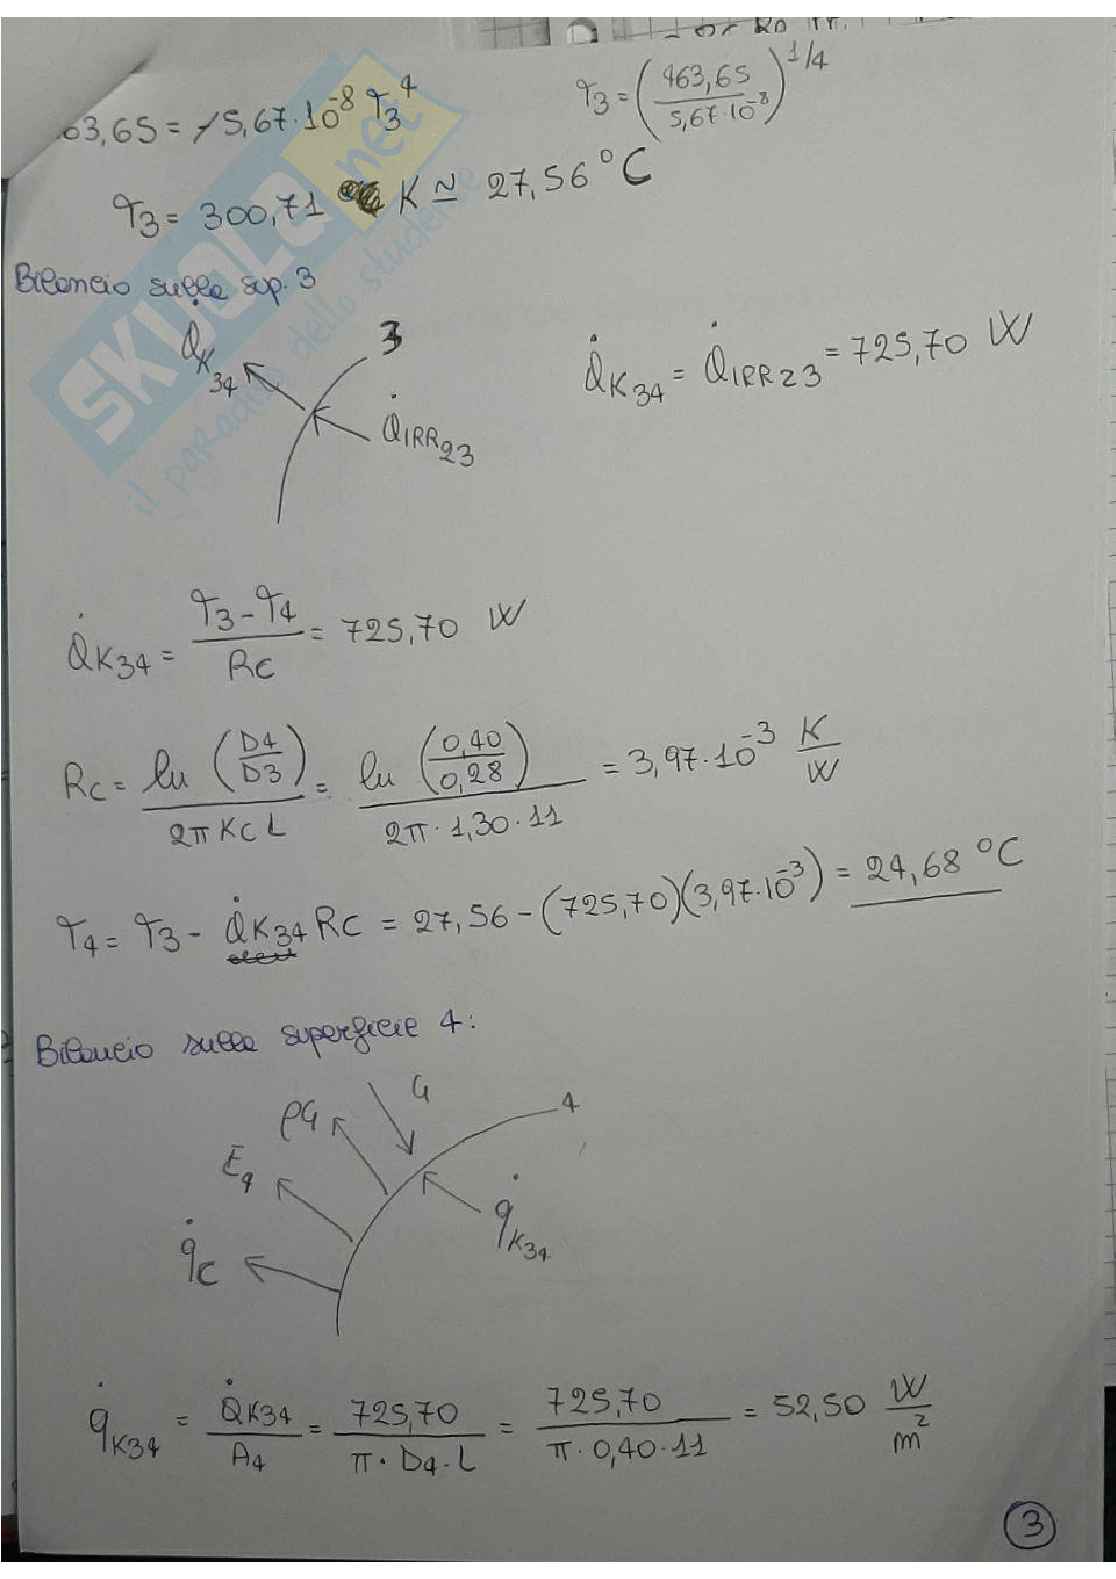 63,65 = 5,67·10^-8 T3^4
T3 = (463,65 / 5,67·10^-8)^1/4
T3 = 300,71 K ≃ 27,56 °C
Bilancio sulla sup. 3
Q̇K34
3
Q̇IRR23
Q̇K34 = Q̇IRR23 = 725,70 W
Q̇K34 = (T3 - T4) / RC = 725,70 W
RC = ln (D4 / D3) / 2π KC L = ln (0,40 / 0,28) / 2π · 1,30 · 11 = 3,97·10^-3 K/W
T4 = T3 - Q̇K34 RC = 27,56 - (725,70)(3,97·10^-3) = 24,68 °C
Bilancio sulla superficie 4:
G
ρG
4
E4
q̇K34
q̇C
q̇K34 = Q̇K34 / A4 = 725,70 / π · D4 · L = 725,70 / π · 0,40 · 11 = 52,50 W/m²
3
SKUOLA.net
il paradiso dello studente